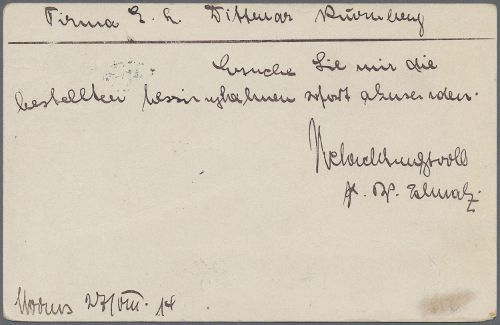 Firma E. L. Dittmar Nürnberg
Ersuche Sie mir die
bestellten Messinghahnen sofort abzusenden.
Hochachtungsvoll
Worms 27/VIII. 14